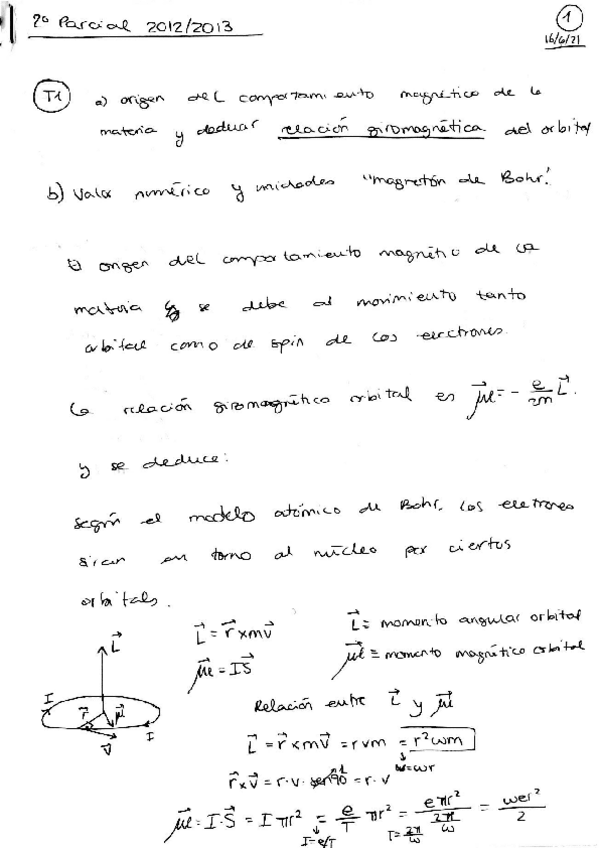 2º Parcial 2012/2013
1
16/6/21
T1 a) origen del comportamiento magnético de la
materia y deducir relación giromagnética del orbital
b) Valor numérico y unidades "magnetón de Bohr".
El origen del comportamiento magnético de la
materia se debe al movimiento tanto
orbital como de spin de los electrones.
La relación giromagnética orbital es μl = - e/2m L.
y se deduce:
Según el modelo atómico de Bohr, los electrones
giran en torno al núcleo por ciertos
orbitales.
L = r x mv
μl = IS
L ≡ momento angular orbital
μl ≡ momento magnético orbital
L
I
r
μ
v
I
Relación entre L y μl
L = r x mv = rvm = r²ωm
v=ωr
r x v = r·v·sen90 = r·v
1
μl = I·S = Iπr² = e/T πr² = eπr²/(2π/ω) = ωer²/2
I=e/T
T=2π/ω